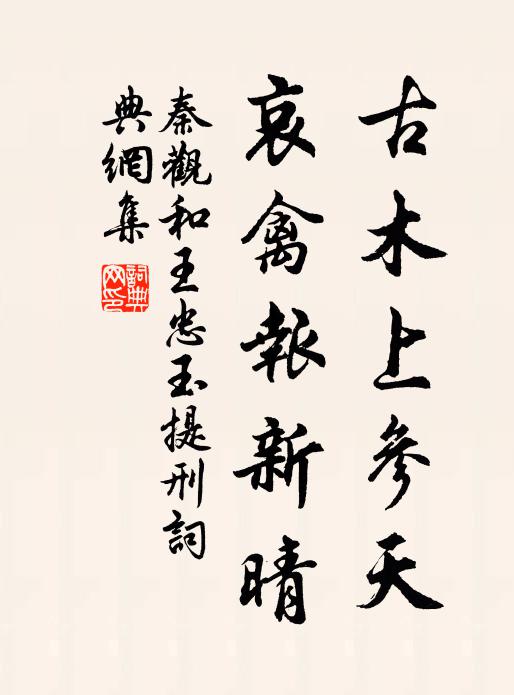 古木上參天
哀禽報新晴
秦觀和王忠玉提刑詞
典網集
詞典网印